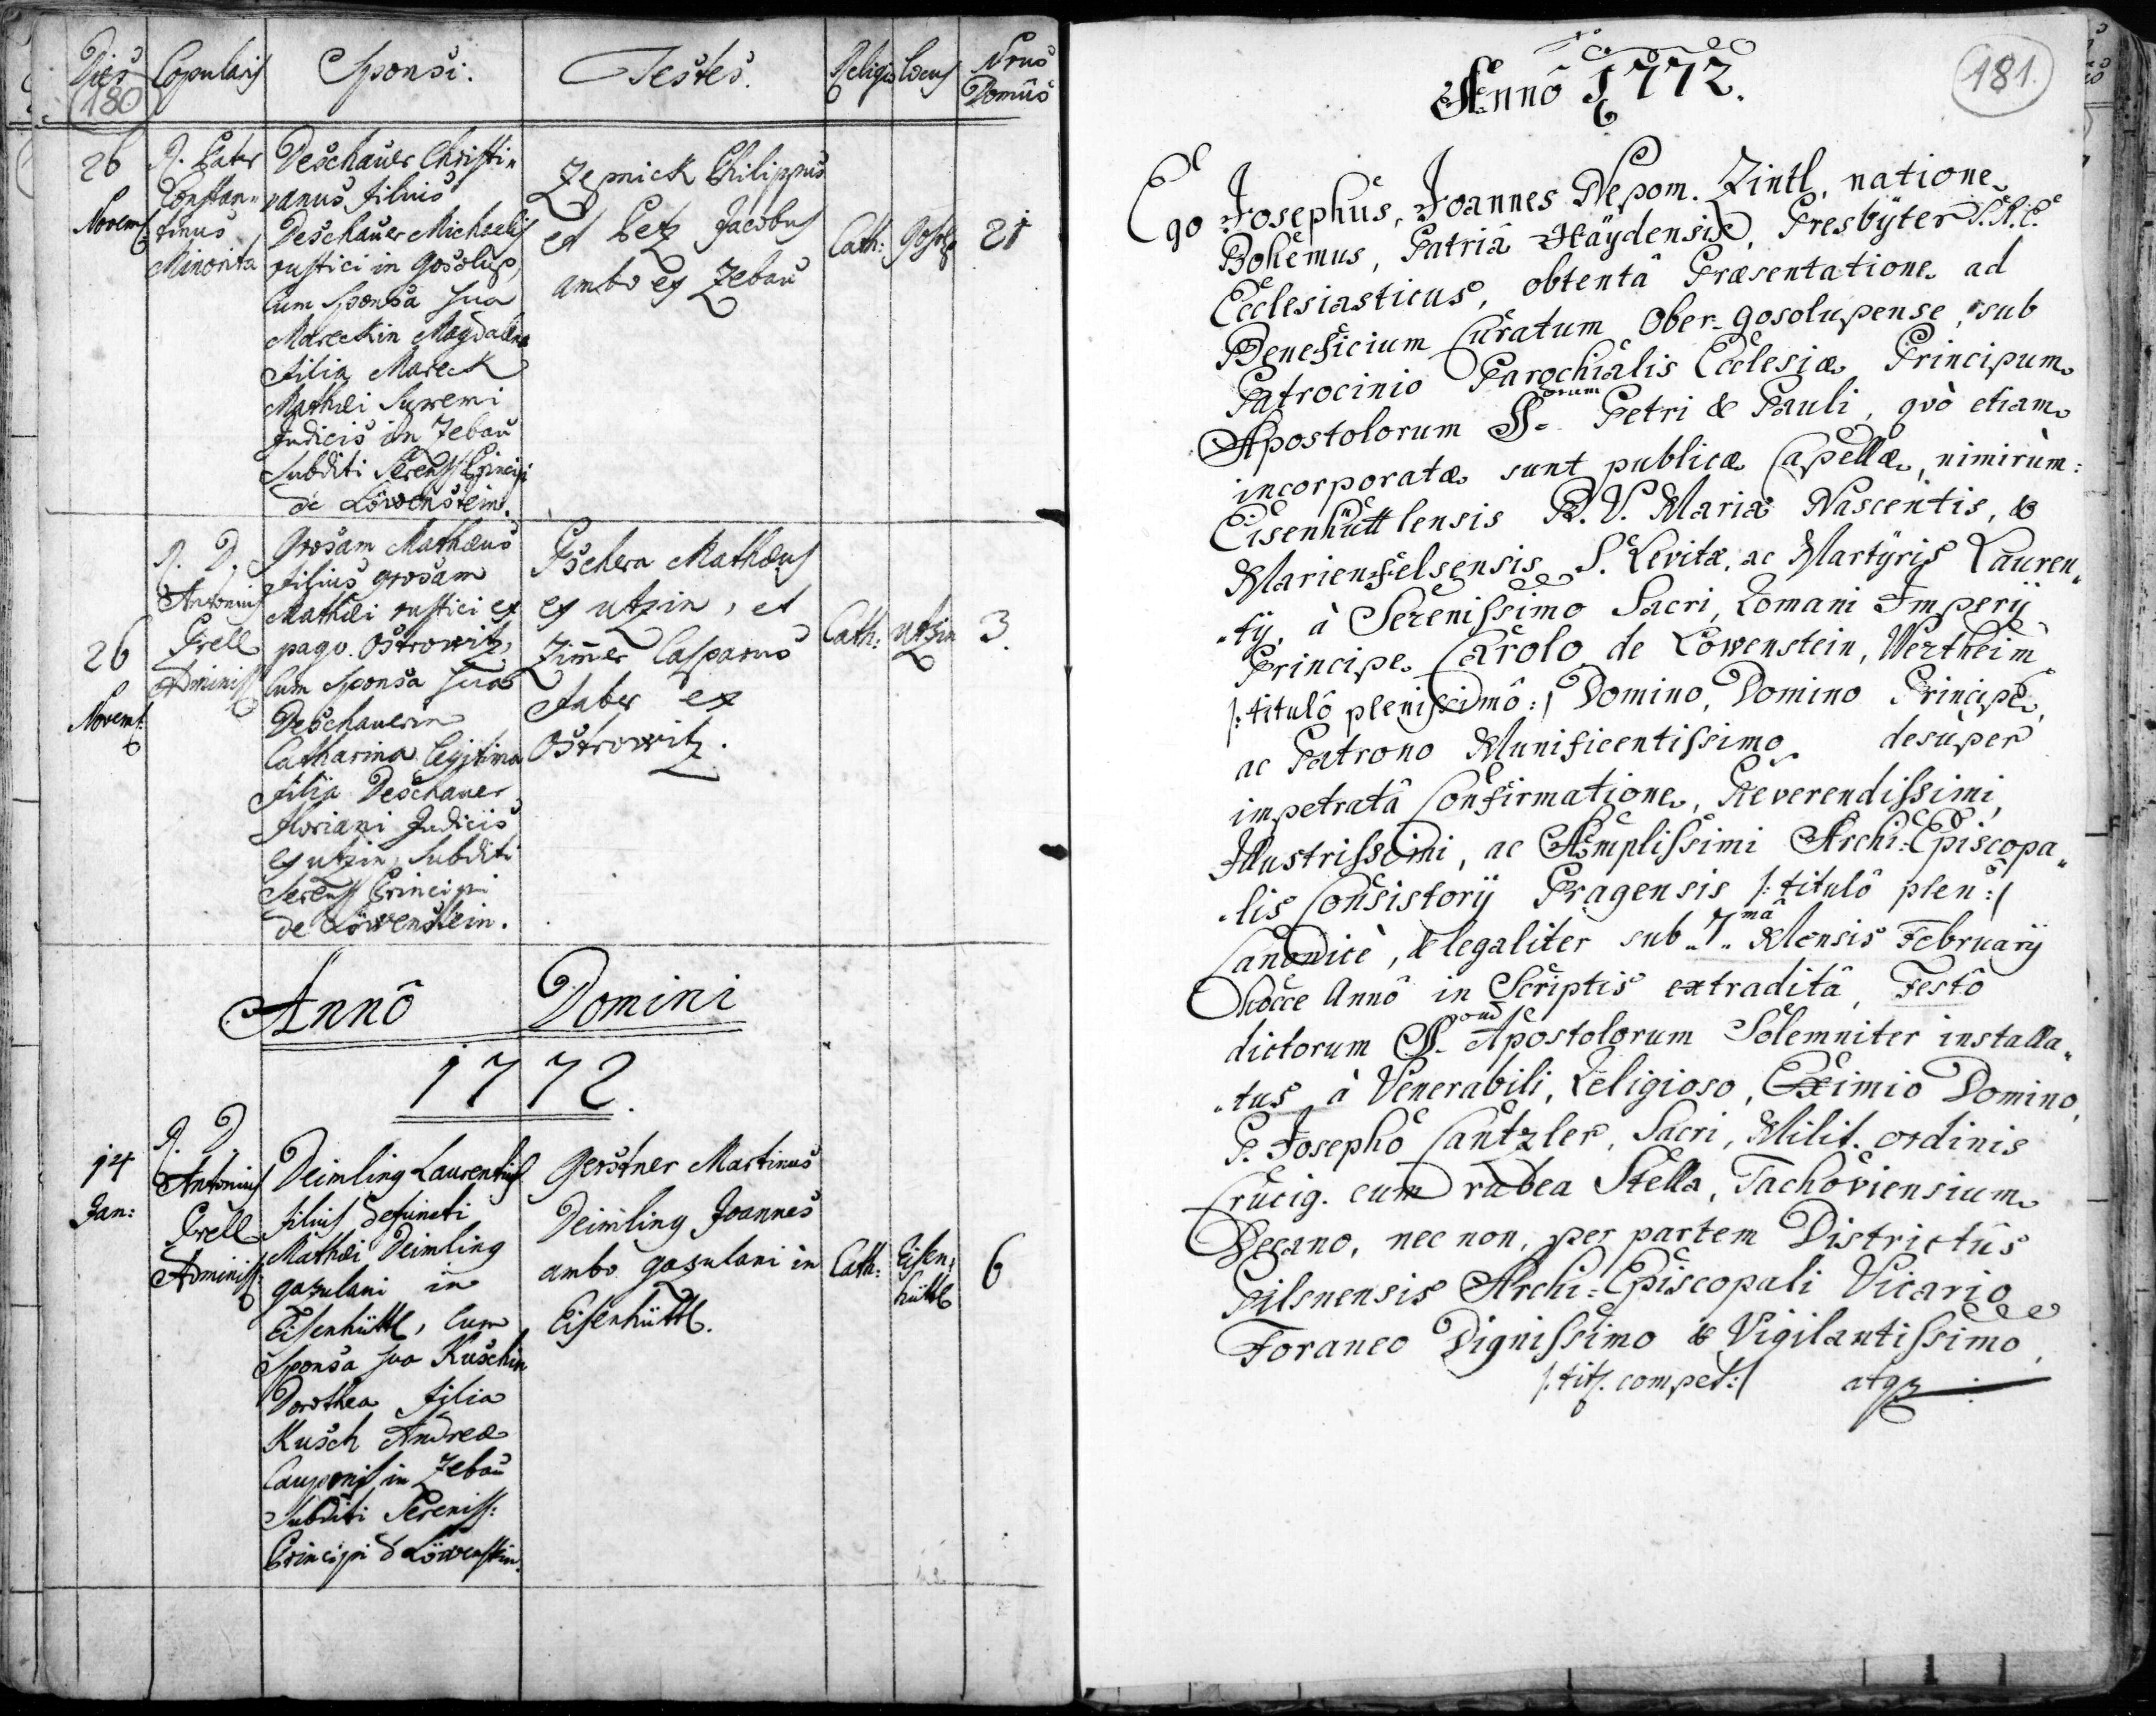 Dies Copulans Sponsi: Testes. Religio Locus Nrus Domus
180
26 Novem:
P. Pater
Constan=
tinus
Minorita
Deschauer Christi=
anus filius
Deschauer Michaelis
rustici in Gosolup,
cum Sponsa sua
Mareckin Magdalena
filia Mareck
Mathæi Supremi
Judicis in Zebau
subditi Sereniss Principi
de Löwenstein.
Zepnick Philippus
et Betz Jacobus
ambo ex Zebau
Cath: Gosolp 21
26
Novemb:
R. D.
Antonius
Prell
Administ:
Grosam Mathæus
filius Grosam
Mathæi rustici ex
pago Ostrowitz,
cum Sponsa sua
Deschauerin
Catharina legitima
filia Deschauer
Floriani Judicis
ex utzin, subditi
Sereniss Principi
de Löwenstein.
Pschera Mathæus
ex utzin, et
Zimmer Casparus
faber ex
Ostrowitz.
Cath: utzin 3.
Annô Domini
1772.
14
Jan:
R. D.
Antonius
Prell
Administ:
Deimling Laurentius
filius defuncti
Mathæi Deimling
gazulani in
Eisenhüttl, cum
Sponsa sua Kuschin
Dorothea filia
Kusch Andreæ
Cauponis in Zebau
subditi Sereniss:
Principi d Löwenstein.
Gerstner Martinus
Deimling Joannes
ambo gazulani in
Eisenhüttl.
Cath: Eisen=
hüttl 6
181.
Annô 1772.
Ego Josephus, Joannes Nepom. Zintl, natione
Bohemus, Patriâ Haÿdensis, Presbÿter S.R.E.
Ecclesiasticus, obtentâ Præsentatione ad
Beneficium Curatum Ober-Gosolupense, sub
Patrocinio Parochialis Ecclesiæ Principum
Apostolorum S.orum Petri & Pauli, quò etiam
incorporatæ sunt publicæ Capellæ, nimirùm:
Eisenhüttlensis B.V. Mariæ Nascentis, &
Marienfelsensis S. Levitæ, ac Martÿris Lauren„
„tÿ, à Serenissimo Sacri, Romani Imperÿ
Principe Carolo de Löwenstein, Wertheim
/: titulô plenissimô :/ Domino, Domino Principe,
ac Patrono Munificentissimo desùper
impetratâ Confirmatione, Reverendissimi,
Illustrissimi, ac Amplissimi Archi-Episcopa„
„lis Consistorÿ Pragensis /: titulô plen :/
Canonicè, & legaliter sub „7„mâ Mensis Februarÿ
hocce Annô in Scriptis extraditâ, Festô
dictorum S. Apostolorum Solemniter installa„
„tus à Venerabili, Religioso, Eximio Domino,
P. Josephô Cantzler, Sacri, Milit. ordinis
Crucig. cum rubea Stella, Tachoviensium
Decano, nec non, per partem Districtûs
Pilsnensis Archi=Episcopali Vicario
Foraneo Dignissimo & Vigilantissimo,
/: tit. compet :/ atqz